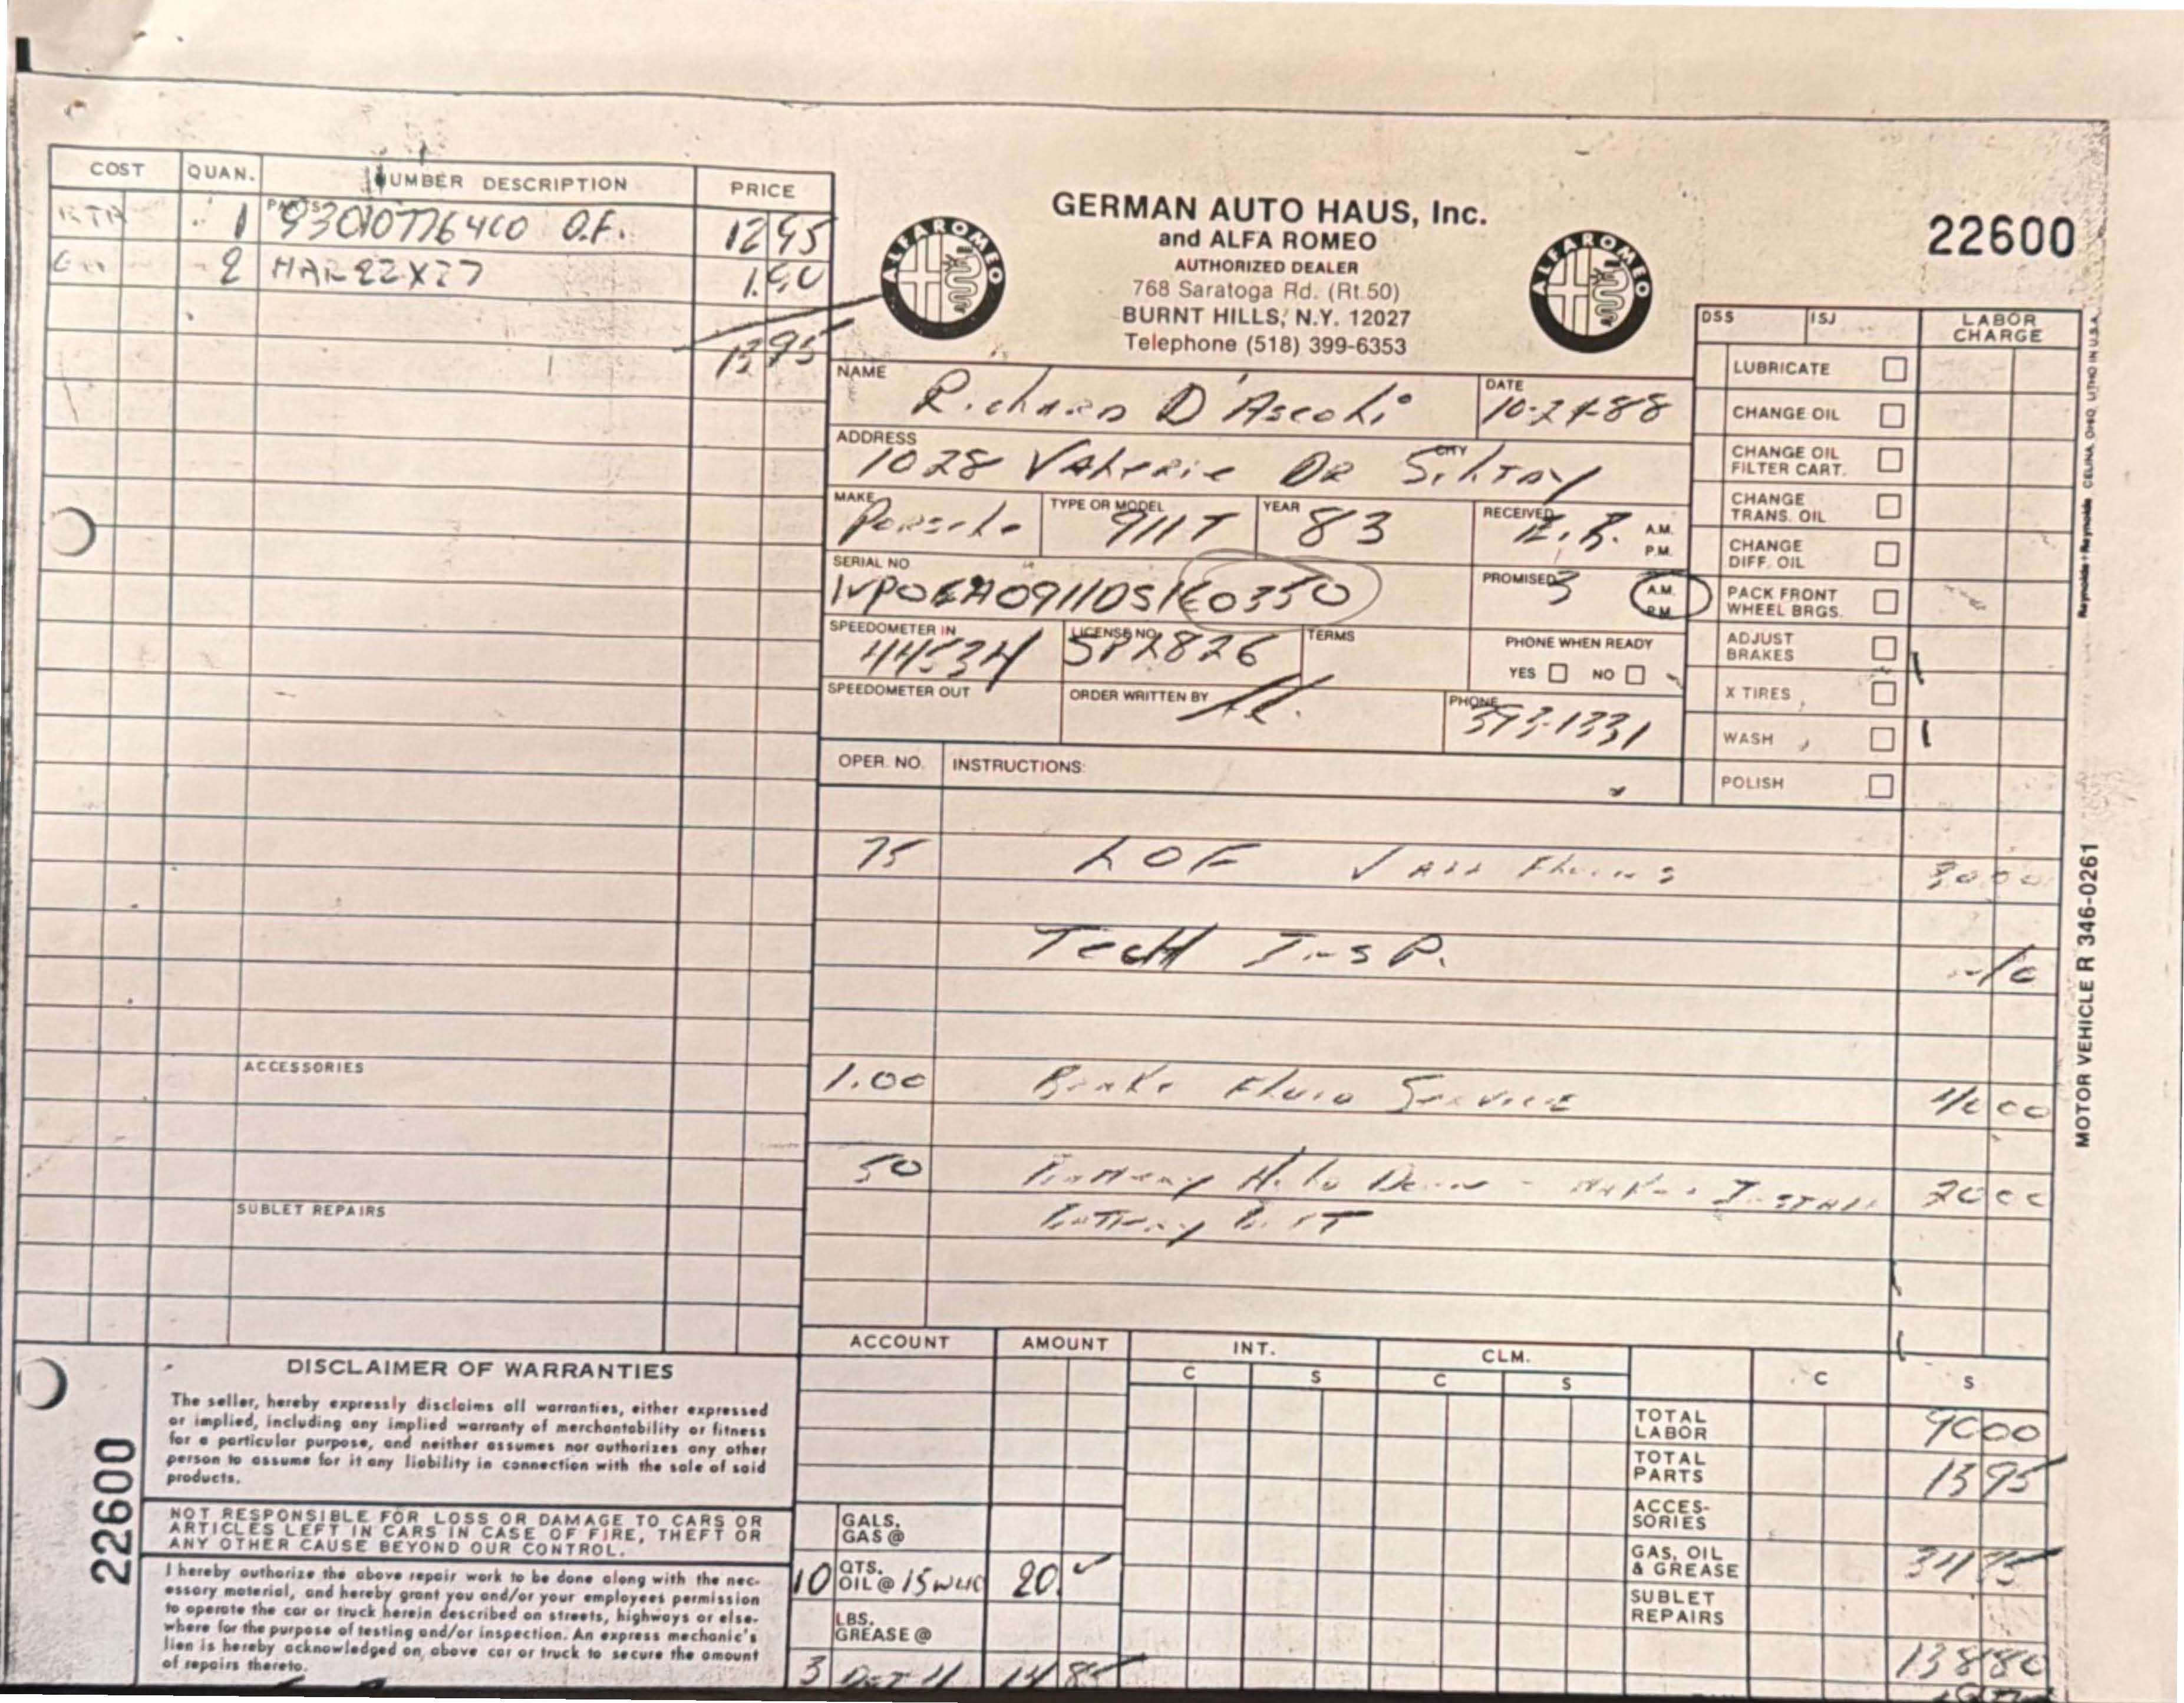 COST QUAN. NUMBER DESCRIPTION PRICE
PARTS
1 93010776400 O.F. 12 95
2 HAR 22X27 1.00
13 95
ALFA ROMEO
GERMAN AUTO HAUS, Inc.
and ALFA ROMEO
AUTHORIZED DEALER
768 Saratoga Rd. (Rt.50)
BURNT HILLS, N.Y. 12027
Telephone (518) 399-6353
ALFA ROMEO
22600
NAME Richard D'Ascoli DATE 10-24-88
ADDRESS 1028 Valerie Dr CITY
MAKE Porsche TYPE OR MODEL 911T YEAR 83 RECEIVED A.M. P.M.
SERIAL NO. PROMISED 3 A.M. P.M.
SPEEDOMETER IN 44534 LICENSE NO. TERMS PHONE WHEN READY
YES NO
SPEEDOMETER OUT ORDER WRITTEN BY PHONE 393-1331
DSS ISJ LABOR CHARGE
LUBRICATE
CHANGE OIL
CHANGE OIL FILTER CART.
CHANGE TRANS. OIL
CHANGE DIFF. OIL
PACK FRONT WHEEL BRGS.
ADJUST BRAKES
X TIRES
WASH
POLISH
OPER. NO. INSTRUCTIONS:
75 LOF √ All Fluids 30 00
Tech Insp. n/c
1.00 Brake Fluid Service 40 00
50 Battery Hold Down - Install 20 00
Battery
ACCESSORIES
SUBLET REPAIRS
Reynolds + Reynolds CELINA, OHIO, LITHO IN U.S.A.
MOTOR VEHICLE R 346-0261
22600
DISCLAIMER OF WARRANTIES
The seller, hereby expressly disclaims all warranties, either expressed
or implied, including any implied warranty of merchantability or fitness
for a particular purpose, and neither assumes nor authorizes any other
person to assume for it any liability in connection with the sale of said
products.
NOT RESPONSIBLE FOR LOSS OR DAMAGE TO CARS OR
ARTICLES LEFT IN CARS IN CASE OF FIRE, THEFT OR
ANY OTHER CAUSE BEYOND OUR CONTROL.
I hereby authorize the above repair work to be done along with the nec-
essory material, and hereby grant you and/or your employees permission
to operate the car or truck herein described on streets, highways or else-
where for the purpose of testing and/or inspection. An express mechanic's
lien is hereby acknowledged on above car or truck to secure the amount
of repairs thereto.
ACCOUNT AMOUNT INT. CLM.
C S C S C S
GALS. GAS @
10 QTS. OIL @ 15W40 20.
LBS. GREASE @
3 14 85
TOTAL LABOR 90 00
TOTAL PARTS 13 95
ACCESSORIES
GAS, OIL & GREASE 34 85
SUBLET REPAIRS
138 80